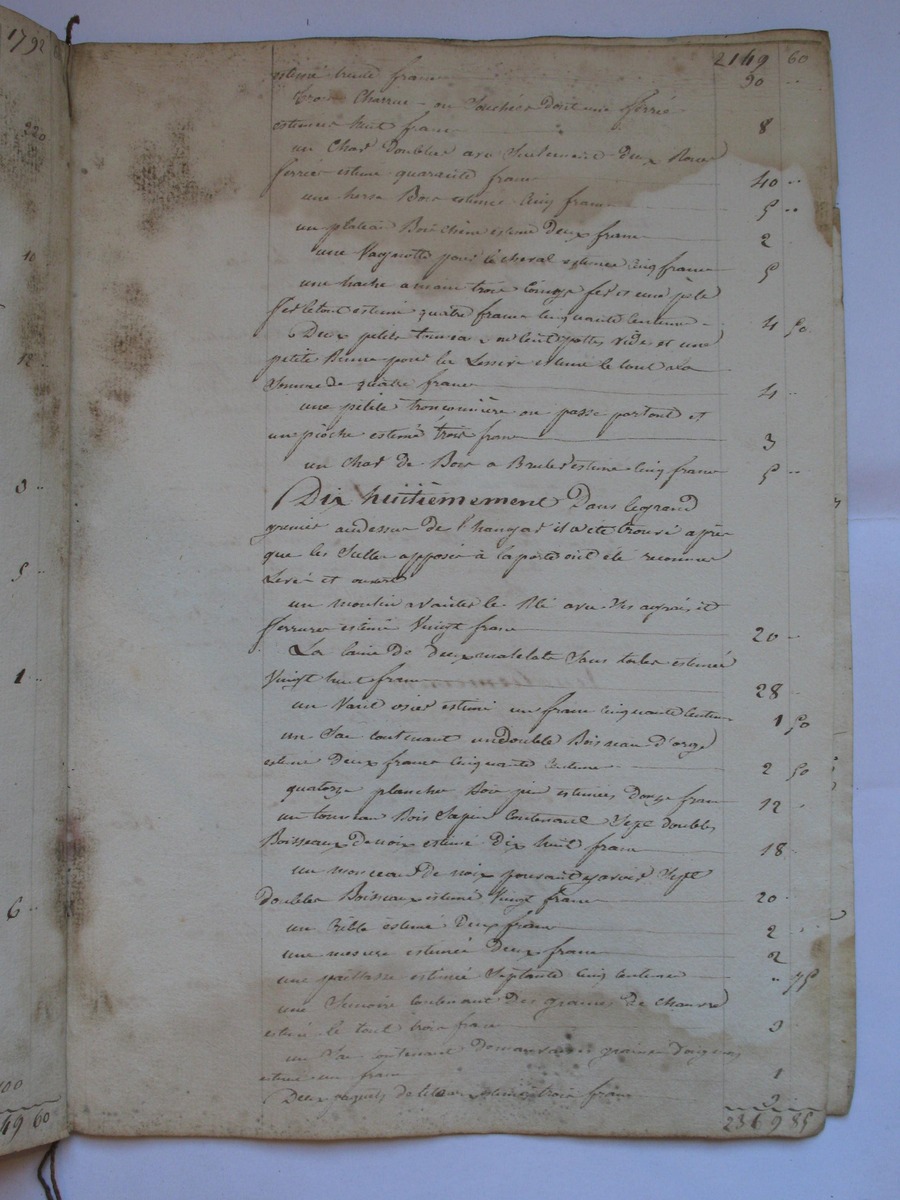 1792
2149 60
estimé trente francs 30 ..
trois Charrue ou Souchés dont une ferrée
estimées huit francs 8
un Char Doublier avec deux Roues
ferrée estimé quarante francs 40 ..
une herse Bois estimée Cinq francs 5 ..
un plateau Bois chêne estimé Deux francs 2
une pour le cheval estimée Cinq francs 5
une hache a main trois fer et une pèle
fer le tout estimé quatre francs Cinquante Centimes 4 50
Deux petits vide et une
petite Benne pour la Lessive estimé le tout a la
Somme de quatre francs 4 ..
une petite tronçonnière ou passe partout et
un pioche estimé trois francs 3
un Char de Bois a Bruler estimé Cinq francs 5 ..
Dix huitièmement Dans le grand
grenier au dessus de l'hangar il a été trouvé après
que les Sellés apposés à la porte ont été reconnus
Levés et ouverts
un moulin a vanter le Blé avec Ses agrais et
ferrures estimé Vingt francs 20 ..
La laine de deux matelats Sans toiles estimée
Vingt huit francs 28
un Vanil osier estimé un franc Cinquante Centimes 1 50
un Sac contenant un Double Boisseau D'orge
estimé Deux francs Cinquante Centimes 2 50
quatorze planches Bois estimées Douze francs 12
un tonneau Bois Sapin Contenant Sept doubles
Boisseaux De noix estimé Dix huit francs 18
un monceau de noix pouvant y avoir Sept
doubles Boisseaux estimé Vingt francs 20
un Crible estimé Deux francs 2
une mesure estimée Deux francs 2
une paillasse estimée Septante Cinq Centimes .. 75
une Semoire Contenant Des graines de chanvre
estimé le tout trois francs 3
un Sac contenant graines D'oignons
estimé un franc 1
Deux paquets de estimés trois francs 3
2369 85
220
10
12
3 ..
5 ..
1 ..
6 ..
100
49 60